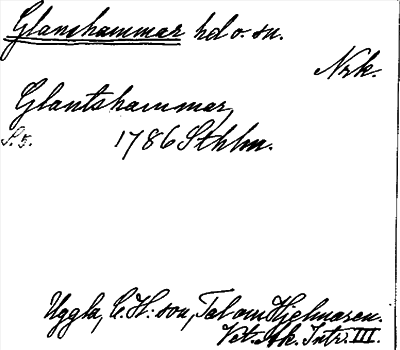 Glanshammar hd o. sn.
Nrk.
Glantshammar,
S. 5. 1786 Sthlm.
Uggla, C. H:son, Tal om Hjelmaren.
Vet. Ak. Intr. III.